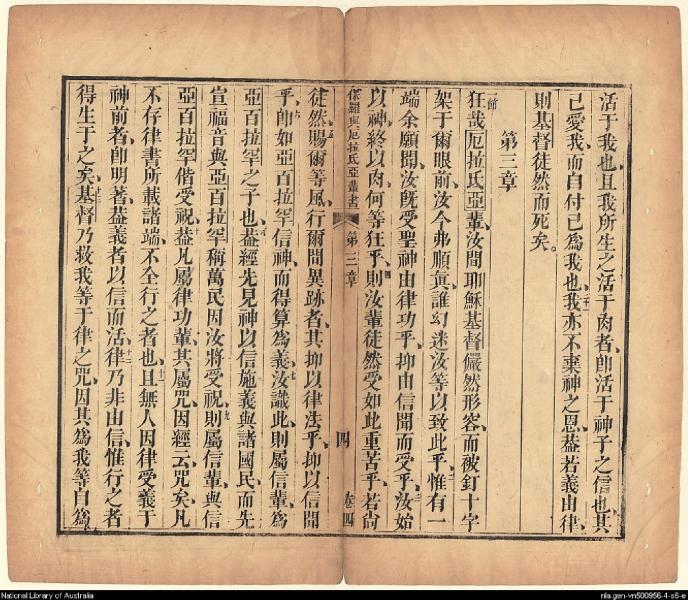 活于我也、且我所生之活于肉者、卽活于神子之信也、其
己愛我、而自付己爲我也、我亦不棄神之恩、葢若義由律、
則基督徒然而死矣。
第三章
一節狂哉、厄拉氏亞輩、汝間耶穌基督儼然形容、而被釘十字
架于爾眼前、汝今弗順眞、誰幻迷汝等以致此乎、惟有一
端余願聞、汝旣受聖神由律功乎、抑由信聞而受乎、汝始
以神、終以肉、何等狂乎、則汝輩徒然受如此重苦乎、若尙
保羅與厄拉氏亞輩書 第三章 四 卷四
徒然、賜爾等風、行爾間異跡者、其抑以律法乎、抑以信聞
乎、卽如亞百拉罕信神、而得算爲義、汝識此、則屬信輩、爲
亞百拉罕之子也、葢經先見神以信施義與諸國民、而先
宣福音與亞百拉罕稱萬民因汝將受祝、則屬信輩、與信
亞百拉罕偕受祝、葢凡屬律功輩、其屬咒、因經云、咒矣、凡
不存律書所載諸端、不全行之者也、且無人因律受義于
神前者、卽明著、葢義者以信而活、律乃非由信、惟行之者
得生于之矣、基督乃救我等于律之咒、因其爲我等自爲
National Library of Australia
nla.gen-vn500956-4-s6-e